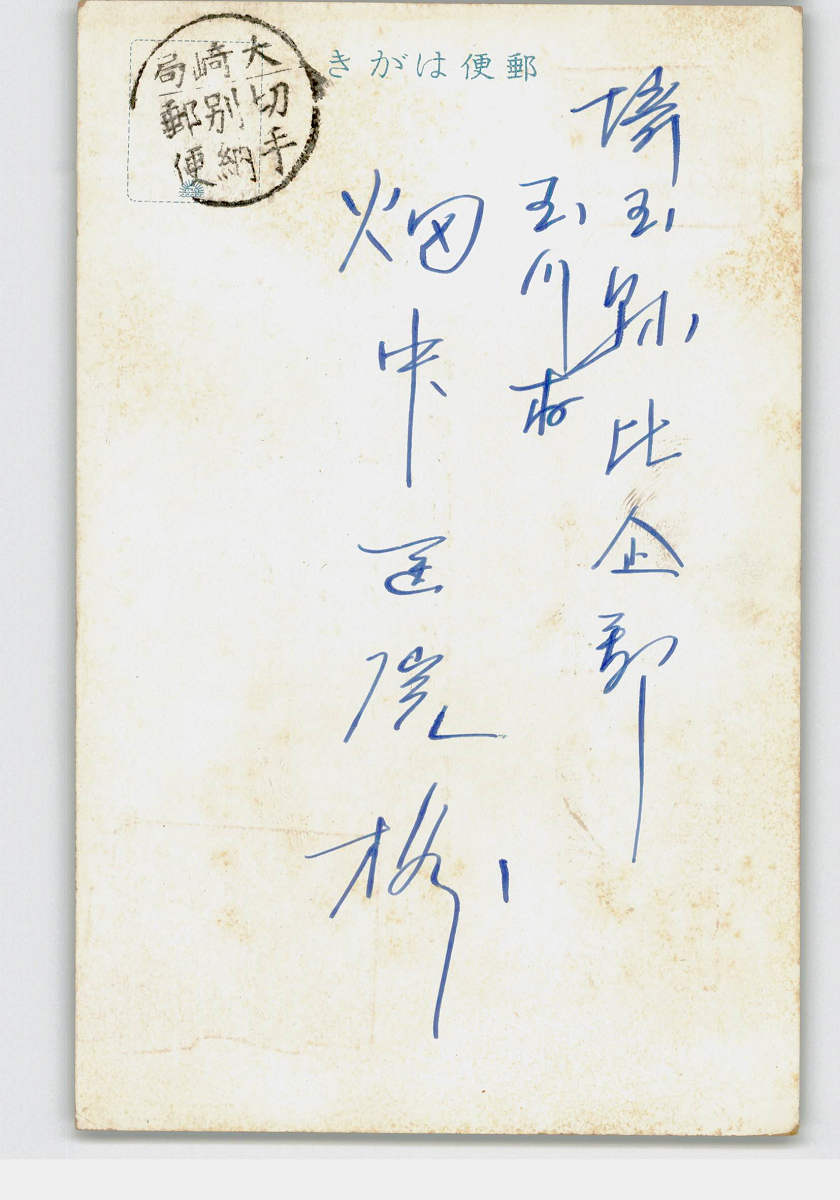 郵便はがき
大崎局
切手
別納
郵便
埼玉縣比企郡
玉川村
畑中医院様